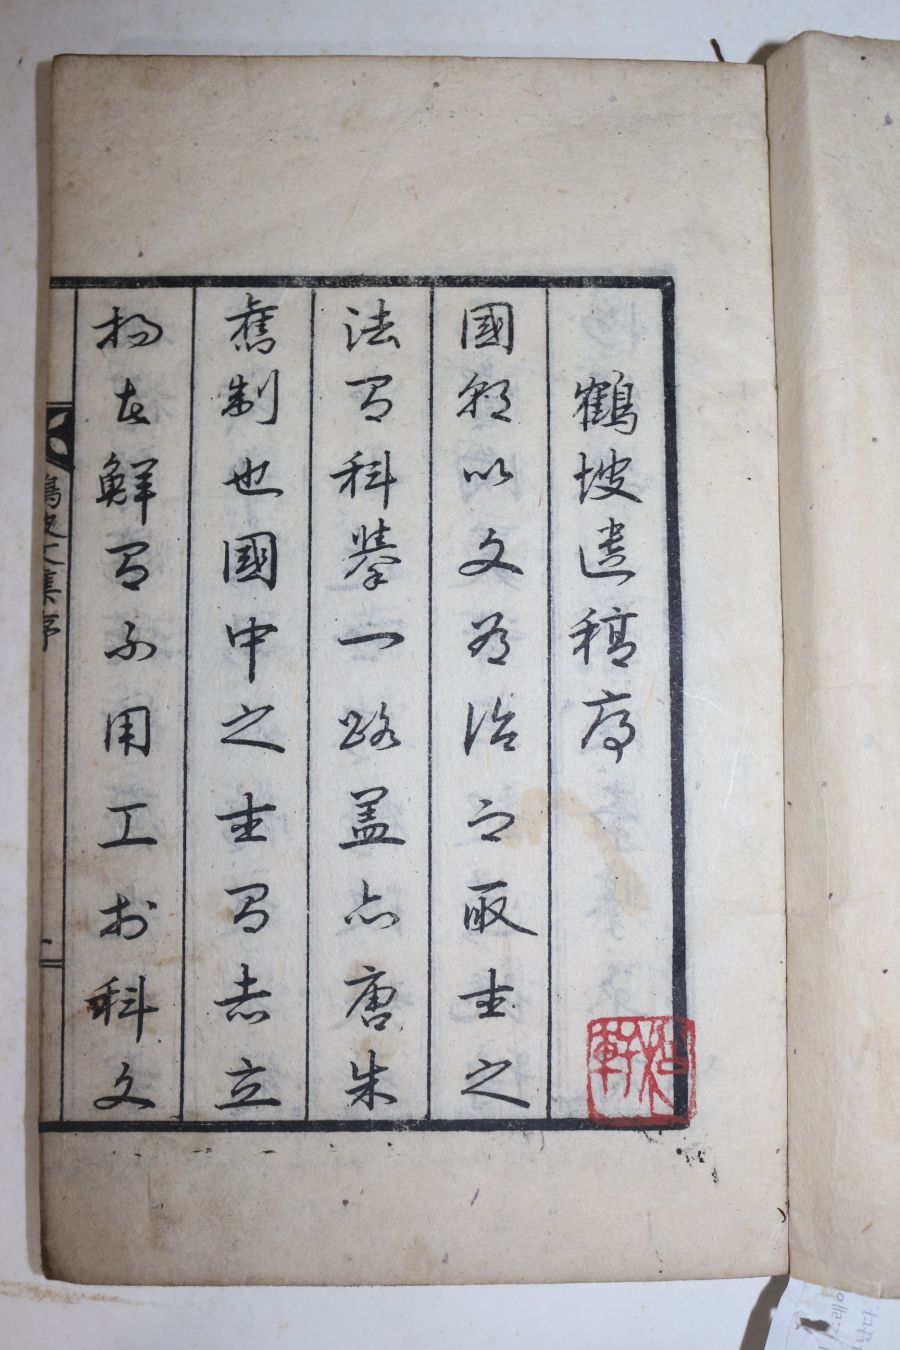 鶴坡遺稿序
國朝以文為治而取士之
法有科擧一路盖亦唐宋
舊制也國中之士有志立
揚者鮮有不用工於科文
鶴坡文集序